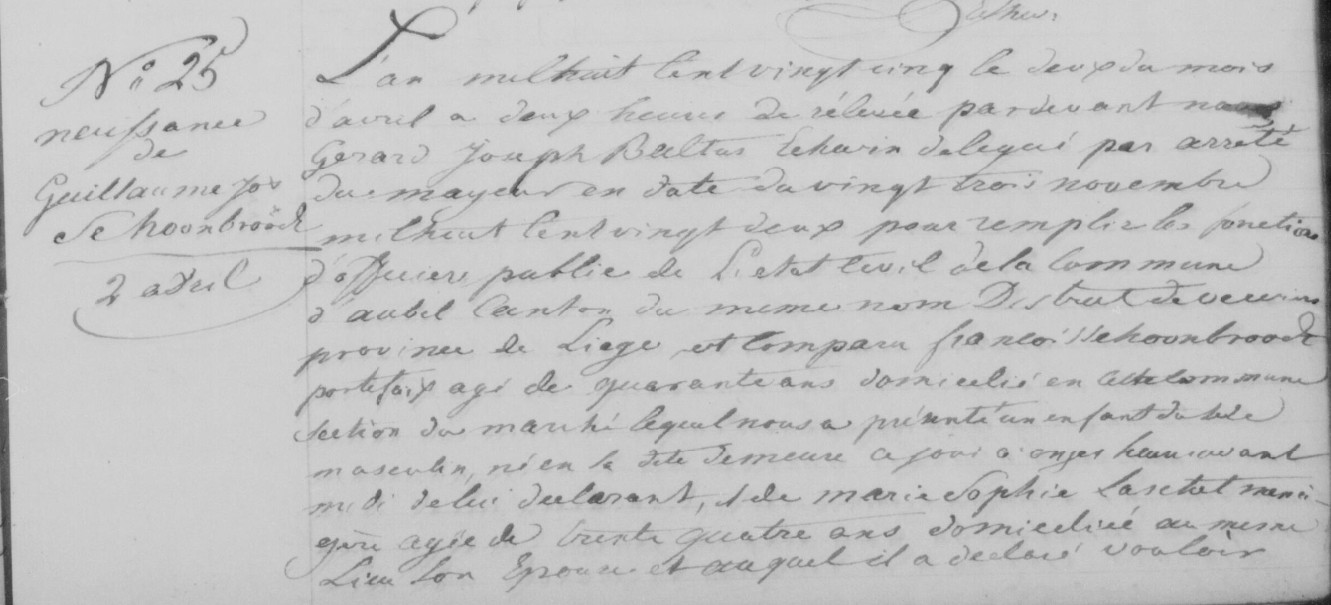 Echev.
N° 25
naissance
de
Guillaume Jos
Schoonbroodt
2 avril
L'an mil huit cent vingt cinq le deux du mois
d'avril a deux heures de rélevée pardevant nous
Gerard Joseph Baltus Echevin delegué par arrêté
du mayeur en date du vingt trois novembre
mil huit cent vingt deux pour remplir les fonctions
d'officiers public de L'etat Civil de la Commune
d'aubel Canton du meme nom District de verviers
province de Liege est Comparu françois Schoonbroodt
portefaix agé de quarante ans domicilié en cette Commune
Section du marché lequel nous a présenté un enfant du sexe
masculin, né en la dite demeure ce jour a onzes heures avant
midi de lui declarant, et de marie Sophie Laschet menai-
gère agée de trente quatre ans domiciliée au meme
Lieu Son Epouse et auquel il a declaré vouloir